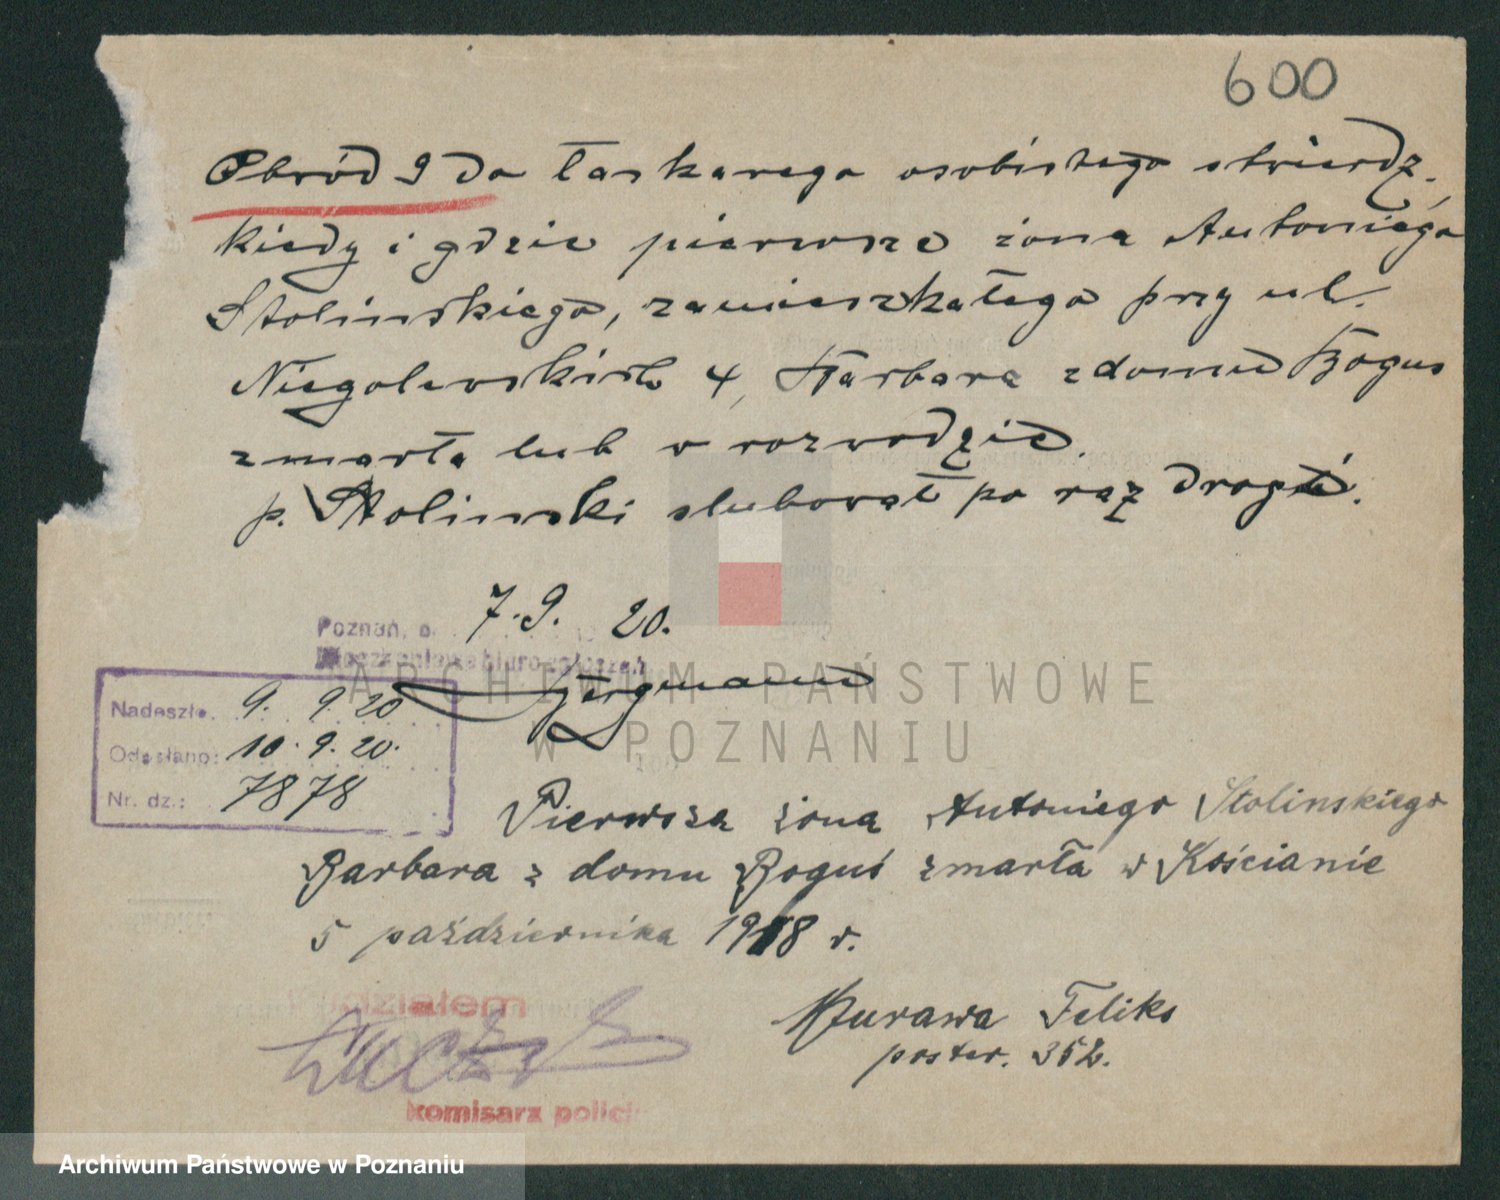 600
Obwód 9 do łaskawego osobistego stwierdz.
kiedy i gdzie pierwsze żona Antoniego
Stolinskiego, zamieszkałego przy ul.
Niegolewskich 4, Barbara z domu Bogus
zmarła lub w rozwodzie.
p. Stolinski slubował po raz drogi.
Poznań, d. 7.9. 20.
Nadeszło. 9. 9. 20
Odesłano: 10. 9. 20.
Nr. dz.: 7878
Pierwsza żona Antoniego Stolinskiego
Barbara z domu Boguś zmarła w Kościanie
5 października 1918 r.
Murawa Feliks
poster. 352.
komisarz policji
ARCHIWUM PAŃSTWOWE
W POZNANIU
Archiwum Państwowe w Poznaniu